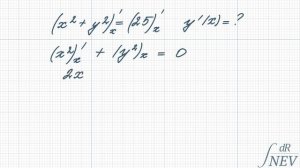 (x² + y²)'ₓ = (25)'ₓ y'(x) = ?
(x²)'ₓ + (y²)ₓ = 0
2x
∫ dR
NEV